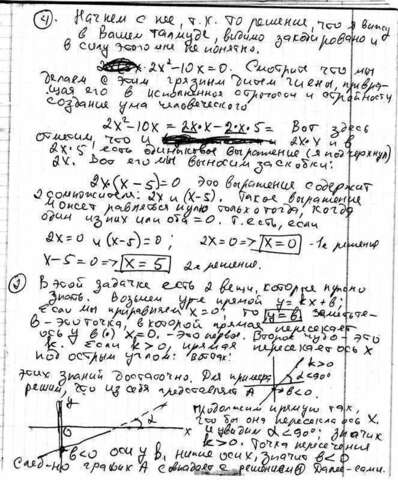 ④ Начнем с нее, т.к. то решение, что я вижу
в Вашем талмуде, видимо закодировано и
в силу этого мне не понятно.
2x²-10x=0. Смотрите что мы
делаем с этим грязным
щая его в исполненное строгости и стройности
создание ума человеческого
2x²-10x = 2x·x-2·x·5 = Вот здесь
отметим, что и 2x·x и в
2x·5 есть одинаковое выражение (я подчеркнул)
2x. Вот его мы выносим за скобки:
2x·(x-5)=0 Это выражение содержит
2 сомножителя: 2x и (x-5). Такое выражение
может равняться нулю только тогда, когда
один из них или оба =0. т.есть, если
2x=0 и (x-5)=0; 2x=0 => x=0 - 1е решение
x-5=0 => x=5 2е решение.
② В этой задачке есть 2 вещи, которые нужно
знать. Возьмем ур-е прямой y=kx+b;
Если мы приравняем x=0, то y=b замеьте-
b-это точка, в которой прямая пересекает
ось y (в) x=0. - это первое. Второе чудо - это
k. Если k>0, прямая пересекает ось X
под острым углом: вот так:
k>0
α<90°
b<0
этих знаний достаточно. Для примера
решим, что из себя представляет A
продолжим прямую так,
что бы она пересекла ось X.
и увидим α<90°; значит
k>0. Точка пересечения
α
0
b<0 оси y в, ниже оси x, значит b<0
След-но график A совпадает с решением Далее - сами.